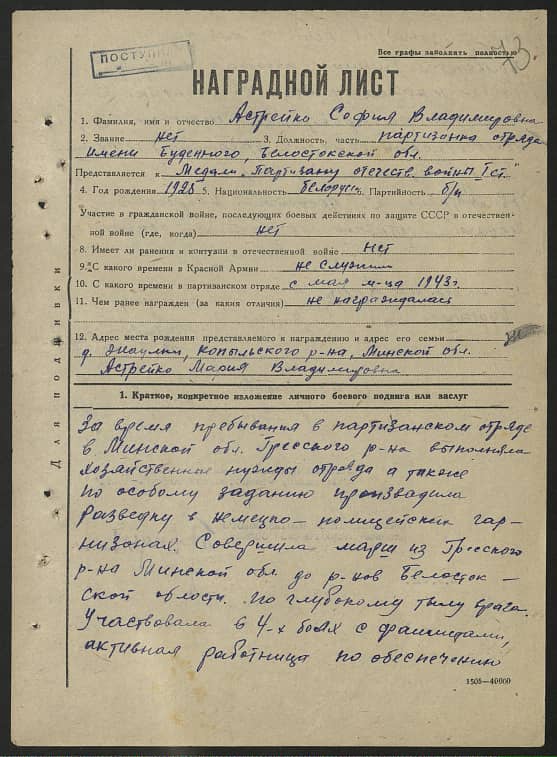 ПОСТУПИЛ
Все графы заполнять полностью
73
НАГРАДНОЙ ЛИСТ
1. Фамилия, имя и отчество Астрейко София Владимировна
2. Звание нет 3. Должность, часть партизанка отряда
имени Буденного, Белостокской обл.
Представляется к Медали „Партизану отечеств. войны I ст."
4. Год рождения 1928 5. Национальность белорусск. 6. Партийность б/п
Участие в гражданской войне, последующих боевых действиях по защите СССР в отечествен-
ной войне (где, когда) нет
8. Имеет ли ранения и контузии в отечественной войне нет
9. С какого времени в Красной Армии не служит
10. С какого времени в партизанском отряде с мая м-ца 1943г.
11. Чем ранее награжден (за какия отличия) не награждалась
12. Адрес места рождения представляемого к награждению и адрес его семьи
д. Жаулки, Копыльского р-на, Минской обл.
Астрейко Мария Владимировна
1. Краткое, конкретное изложение личного боевого подвига или заслуг
За время пребывания в партизанском отряде
в Минской обл. Гресского р-на выполняла
хозяйственные нужды отряда а также
по особому заданию произвадила
разведку в немецко-полицейских гар-
низонах. Совершила марш из Гресского
р-на Минской обл. до р-нов Белосток-
ской области. по глубокому тылу врага.
Участвовала в 4-х боях с фашистами,
активная работница по обеспечению
1505—40000
Для подшивки